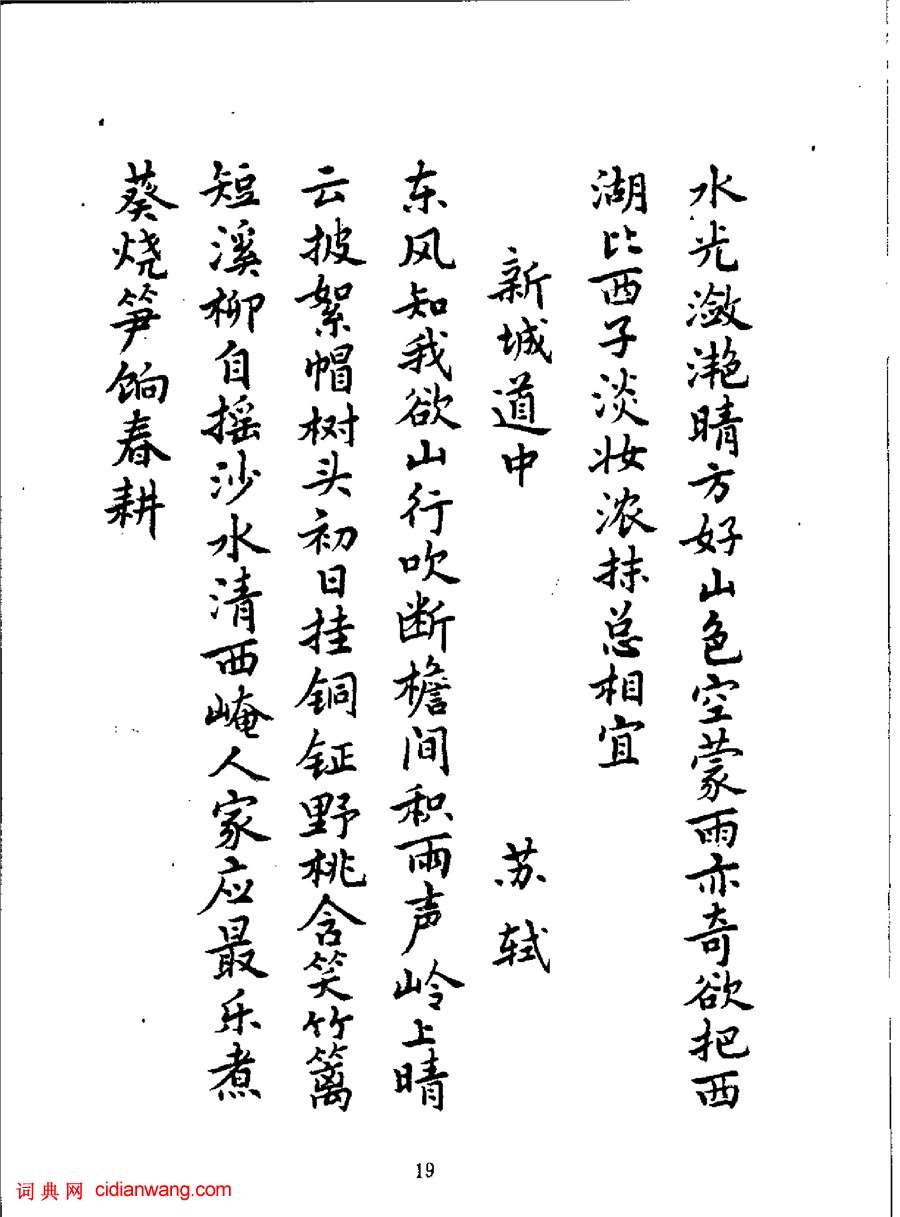 水光潋滟晴方好山色空蒙雨亦奇欲把西
湖比西子淡妆浓抹总相宜
新城道中 苏轼
东风知我欲山行吹断檐间积雨声岭上晴
云披絮帽树头初日挂铜钲野桃含笑竹篱
短溪柳自摇沙水清西崦人家应最乐煮
葵烧笋饷春耕
19
词典网 cidianwang.com